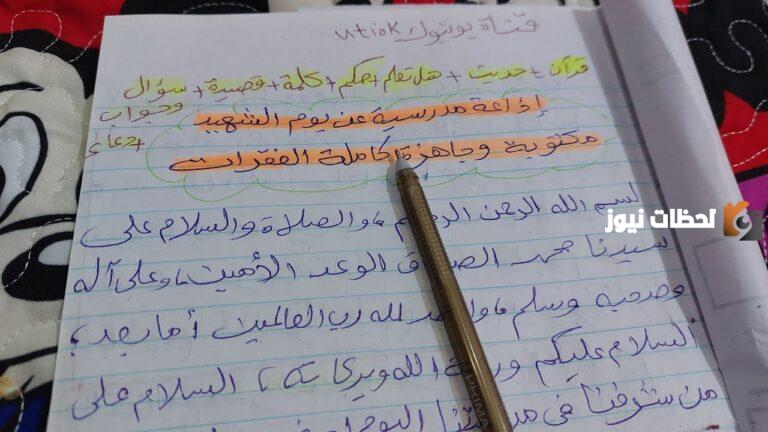 قناة يوتيوب utiok
قرآن + حديث + هل تعلم + حكم + كلمة + قصيدة + سؤال وجواب + دعاء
إذاعة مدرسية عن يوم الشهيد
مكتوبة وجاهزة كاملة الفقرات
بسم الله الرحمن الرحيم، والصلاة والسلام على
سيدنا محمد الصادق الوعد الأمين، وعلى آله
وصحبه وسلم، والحمد لله رب العالمين أما بعد،
السلام عليكم ورحمة الله وبركاته، السلام على
من شرفنا في اليوم
لحظات نيوز
PRIMA